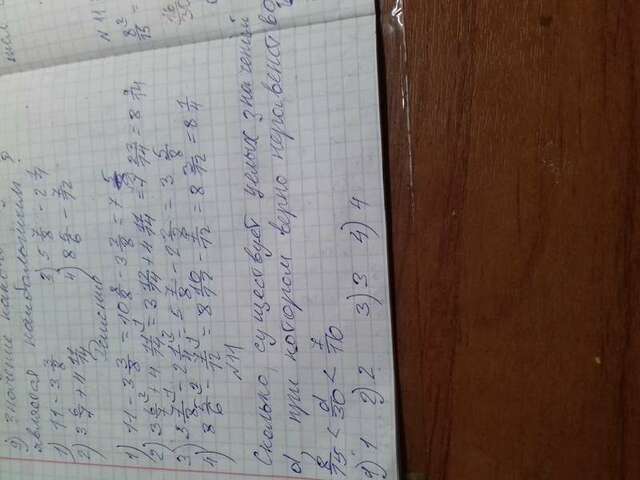 9) Значение какого
является наибольшим?
1) 11 - 3 3/8 3) 5 7/8 - 2 1/4
2) 3 6/7 + 4 11/14 4) 8 5/6 - 7/12
Решение
1) 11 - 3 3/8 = 10 8/8 - 3 3/8 = 7 5/8
2) 3 6/7 + 4 11/14 = 3 12/14 + 4 11/14 = 7 23/14 = 8 9/14
3) 5 7/8 - 2 1/4 = 5 7/8 - 2 2/8 = 3 5/8
4) 8 5/6 - 7/12 = 8 10/12 - 7/12 = 8 3/12 = 8 1/4
N11
Сколько существует целых значений
d, при котором верно неравенство
8/15 < d/30 < 7/10
1) 1 2) 2 3) 3 4) 4
N 11
8/15 =
16/30